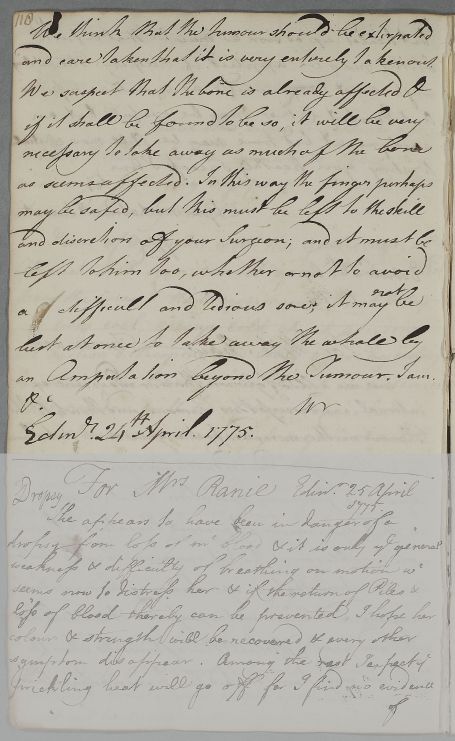 110
We think that the tumour should be extirpated
and care taken that it is very entirely taken out
We suspect that the bone is already affected &
if it shall be found to be so, it will be very
necessary to take away as much of the bone
as seems affected. In this way the finger perhaps
may be safed, but this must be left to the skill
and discretion of your Surgeon; and it must be
left to him too, whether or not to avoid
a difficult and tidious sore; it may not be
best at once to take away the whole by
an Amputation beyond the Tumour. I am
&c
Edinr. 24th April 1775.
Dropsy For Mrs Ranie Edinr. 25 April
1775
She appears to have been in danger of a
dropsy from loss of blood & it is only ye general
weakness & difficulty of breathing on motion wc
seems now to distress her & if the return of Piles &
loss of blood thereby can be prevented, I hope her
colour & strength will be recovered & every other
symptom disappear. Among the rest I expect ye
prickling heat will go off for I find no evidence
of